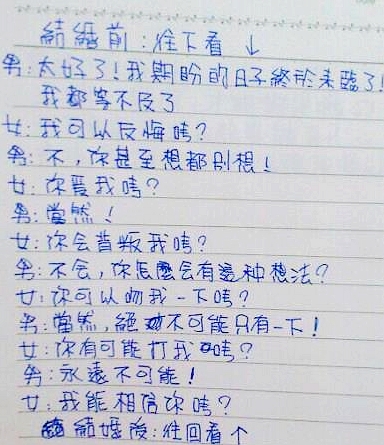 結婚前:往下看 ↓
男:太好了!我期盼的日子終於來臨了!
我都等不及了
女:我可以反悔嗎?
男:不,你甚至想都別想!
女:你愛我嗎?
男:當然!
女:你会背叛我嗎?
男:不会,你怎麼会有這种想法?
女:你可以吻我一下嗎?
男:當然,絕不可能只有一下!
女:你有可能打我嗎?
男:永遠不可能!
女:我能相信你嗎?
結婚後:往回看↑